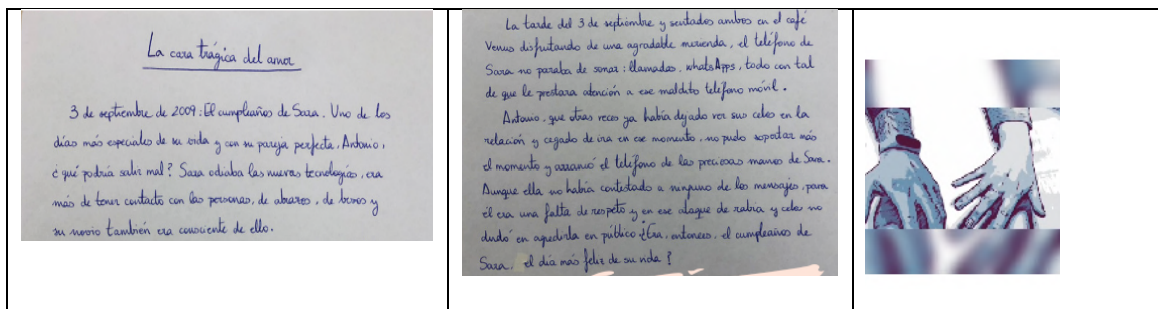 La cara trágica del amor
3 de septiembre de 2009: El cumpleaños de Sara. Uno de los
días más especiales de su vida y con su pareja perfecta, Antonio,
¿qué podría salir mal? Sara odiaba las nuevas tecnologías, era
más de tener contacto con las personas, de abrazos, de besos y
su novio también era consciente de ello.
La tarde del 3 de septiembre y sentados ambos en el café
Venus disfrutando de una agradable merienda, el teléfono de
Sara no paraba de sonar: llamadas, whatsApps, todo con tal
de que le prestara atención a ese maldito teléfono móvil.
Antonio, que otras veces ya había dejado ver sus celos en la
relación y cegado de ira en ese momento, no pudo soportar más
el momento y arrancó el teléfono de las preciosas manos de Sara.
Aunque ella no había contestado a ninguno de los mensajes, para
él era una falta de respeto y en ese ataque de rabia y celos no
dudó en agredirla en público ¿Era, entonces, el cumpleaños de
Sara, el día más feliz de su vida?